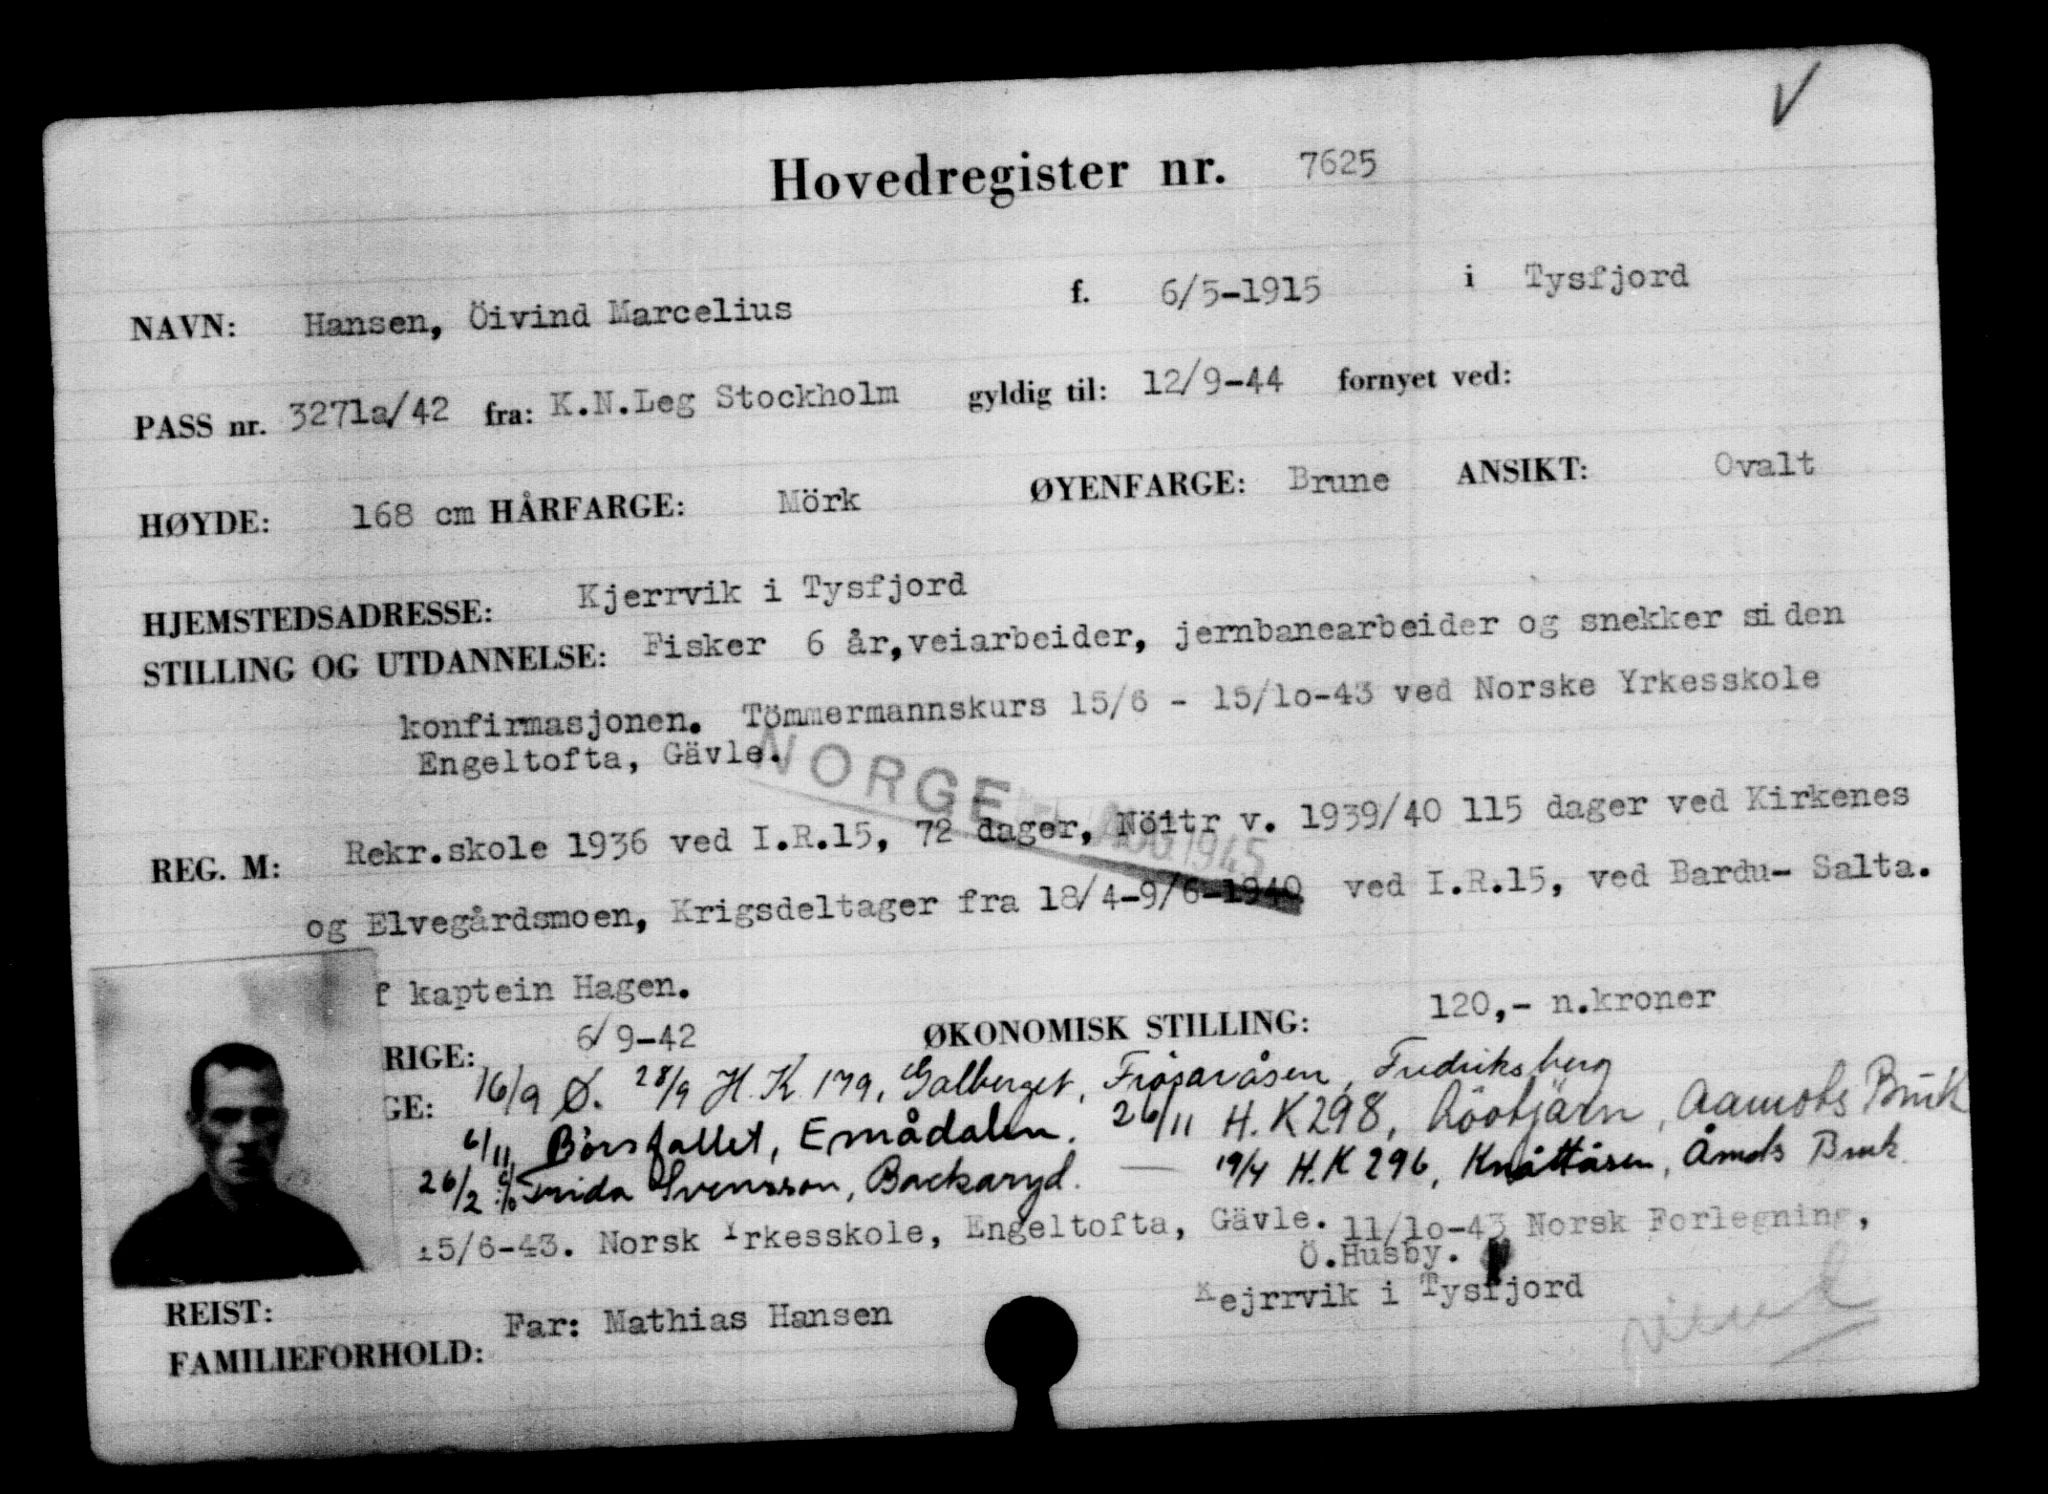 Hovedregister nr. 7625
NAVN: Hansen, Öivind Marcelius f. 6/5-1915 i Tysfjord
PASS nr. 3271a/42 fra: K.N.Leg Stockholm gyldig til: 12/9-44 fornyet ved:
HØYDE: 168 cm HÅRFARGE: Mörk ØYENFARGE: Brune ANSIKT: Ovalt
HJEMSTEDSADRESSE: Kjerrvik i Tysfjord
STILLING OG UTDANNELSE: Fisker 6 år, veiarbeider, jernbanearbeider og snekker siden
konfirmasjonen. Tömmermannskurs 15/6 - 15/1o-43 ved Norske Yrkesskole
Engeltofta, Gävle.
NORGE AUG 1945
REG. M: Rekr.skole 1936 ved I.R.15, 72 dager, Nöitr v. 1939/40 115 dager ved Kirkenes
og Elvegårdsmoen, Krigsdeltager fra 18/4-9/6-1940 ved I.R.15, ved Bardu- Salta.
f kaptein Hagen.
RIGE: 6/9-42 ØKONOMISK STILLING: 120,- n.kroner
GE: 16/9 Ø. 28/9 H.K. 179, Galberget, Frösaråsen, Fredriksberg
6/11 Börsfallet, Emådalen. 26/11 H.K 298, Aamots Bruk
26/2 c/o Frida Svensson, Backaryd. — 19/4 H.K 296, Knåttåsen, Åmots Bruk.
15/6-43. Norsk Yrkesskole, Engeltofta, Gävle. 11/1o-43 Norsk Forlegning,
Ö.Husby.
REIST:
FAMILIEFORHOLD: Far: Mathias Hansen Kejrrvik i Tysfjord